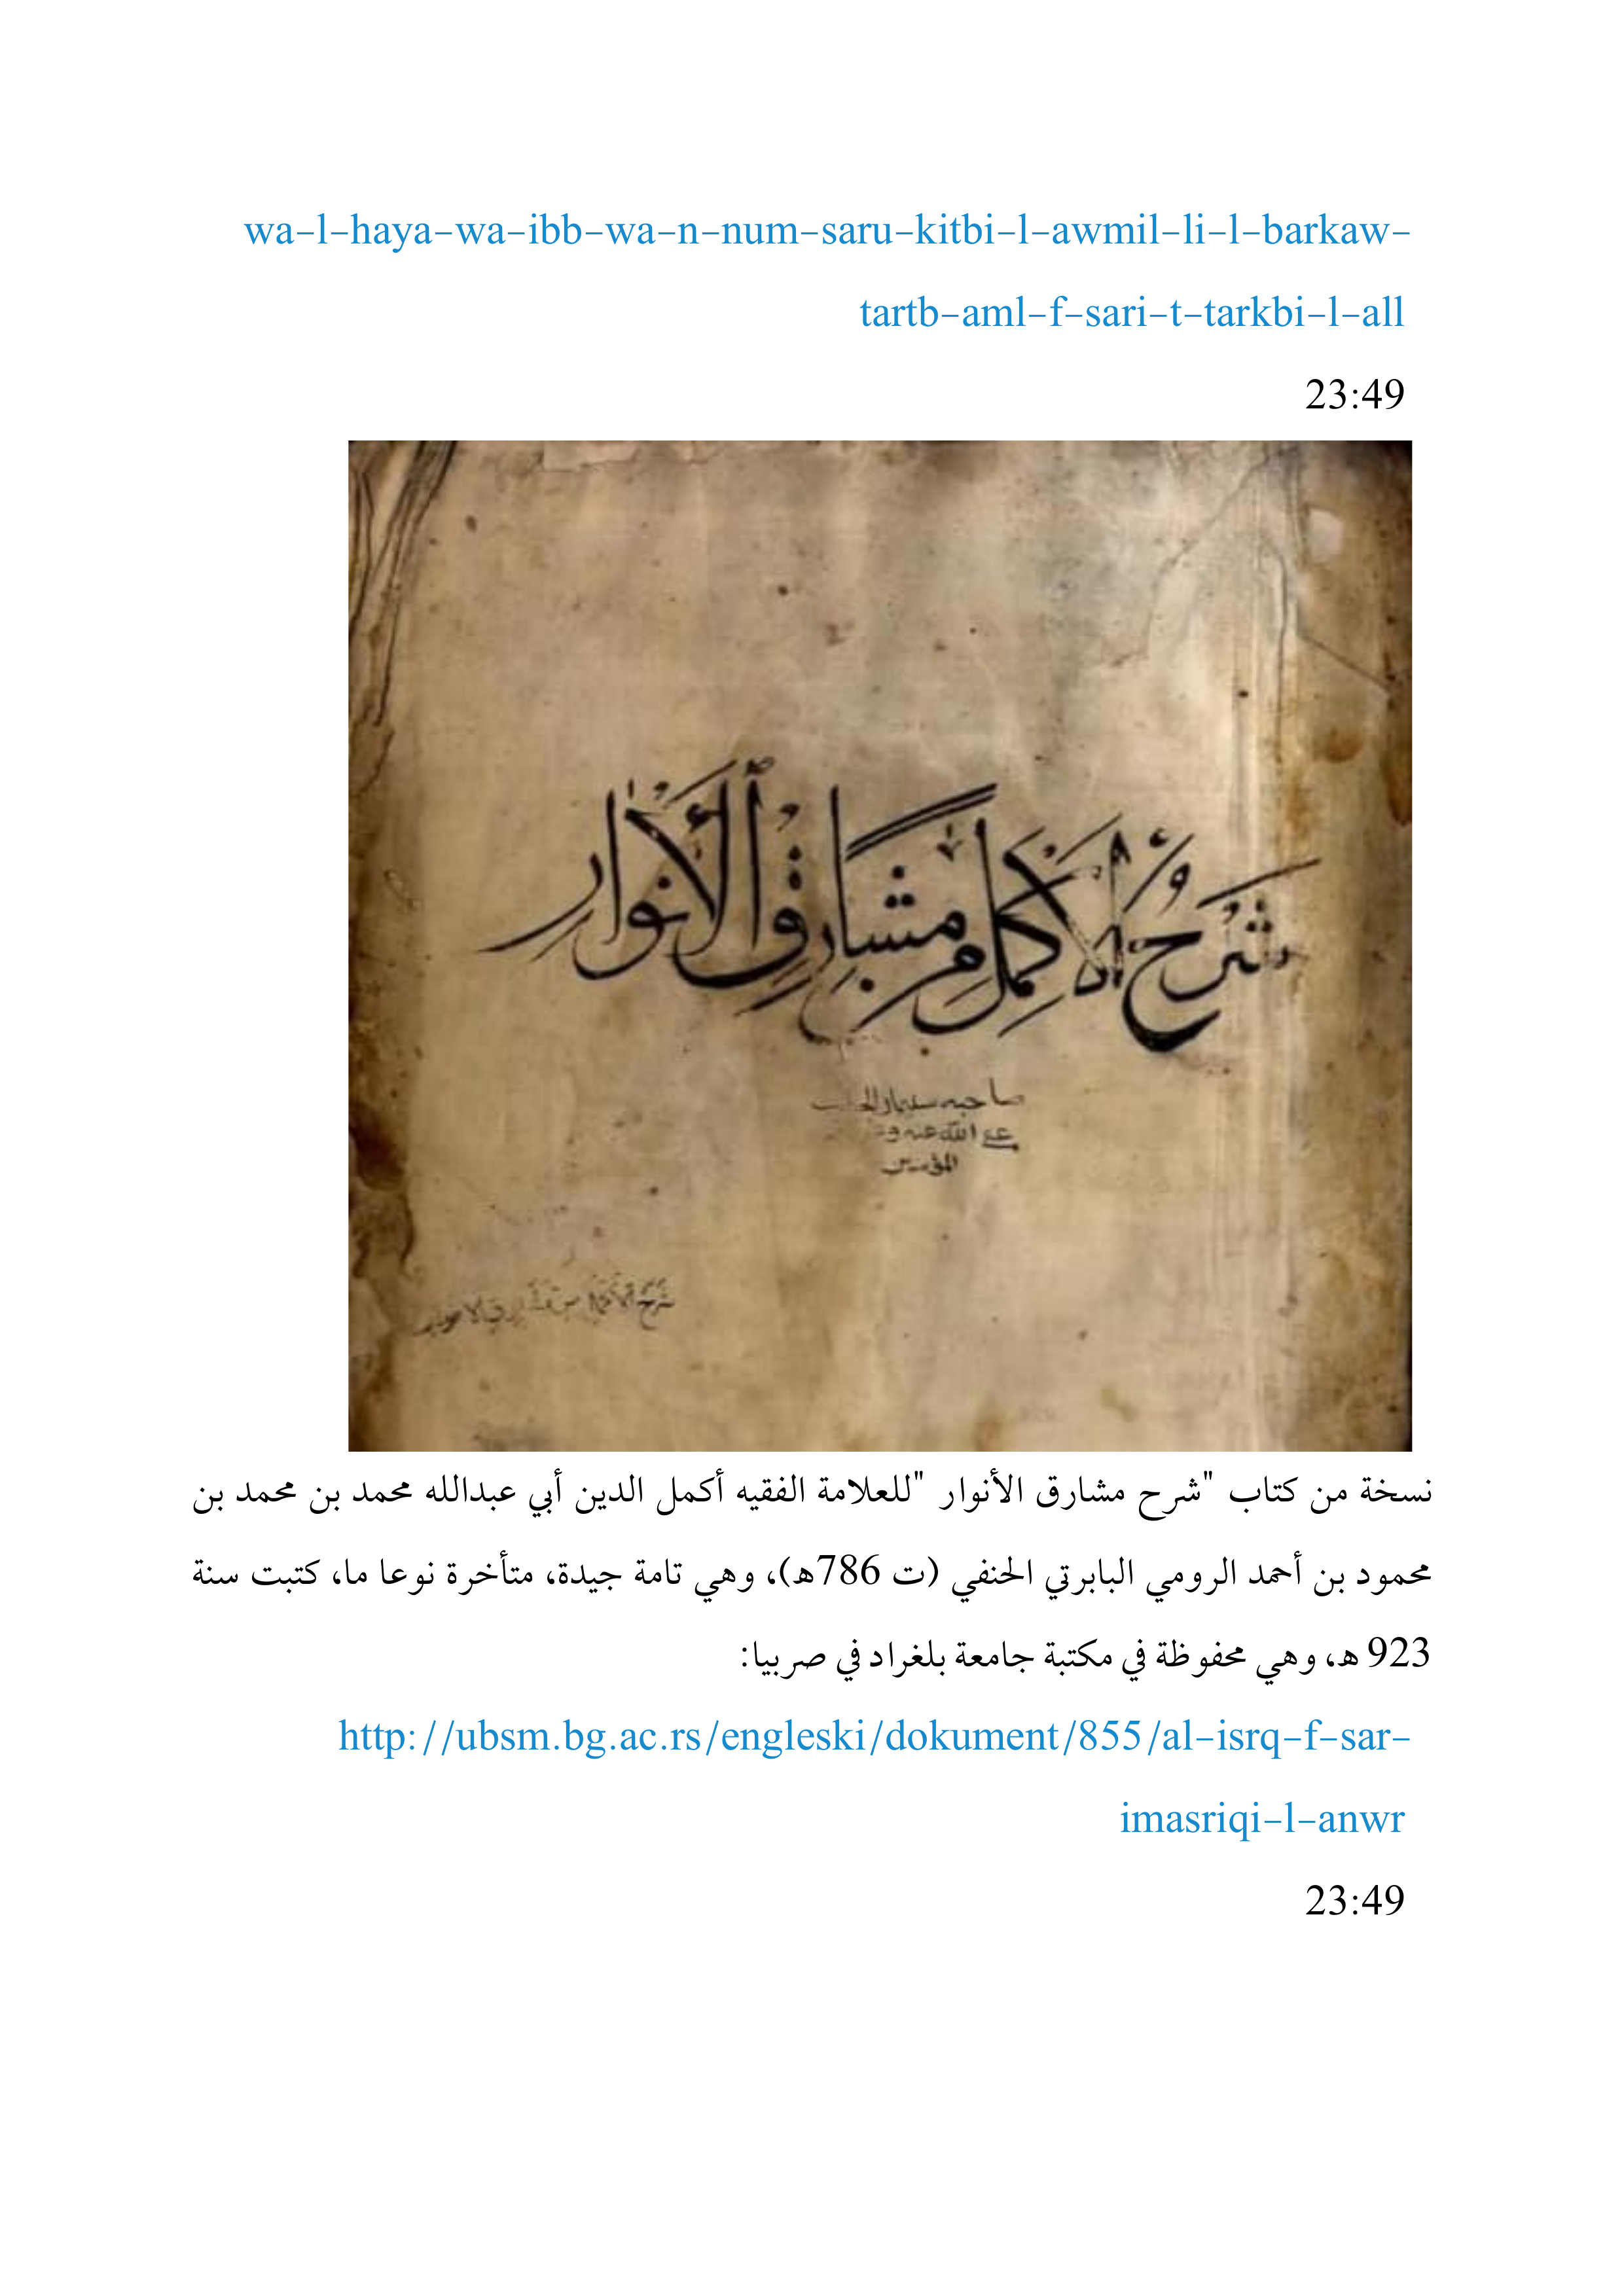 wa-l-haya-wa-ibb-wa-n-num-saru-kitbi-l-awmil-li-l-barkaw-
tartb-aml-f-sari-t-tarkbi-l-all
23:49
شرح الأكمل من مشارق الأنوار
صاحبه
الله عنه
المؤمنين
شرح الأكمل من مشارق الأنوار
نسخة من كتاب "شرح مشارق الأنوار "للعلامة الفقيه أكمل الدين أبي عبدالله محمد بن محمد بن
محمود بن أحمد الرومي البابرتي الحنفي (ت 786هـ)، وهي تامة جيدة، متأخرة نوعا ما، كتبت سنة
923 هـ، وهي محفوظة في مكتبة جامعة بلغراد في صربيا:
http://ubsm.bg.ac.rs/engleski/dokument/855/al-isrq-f-sar-
imasriqi-l-anwr
23:49